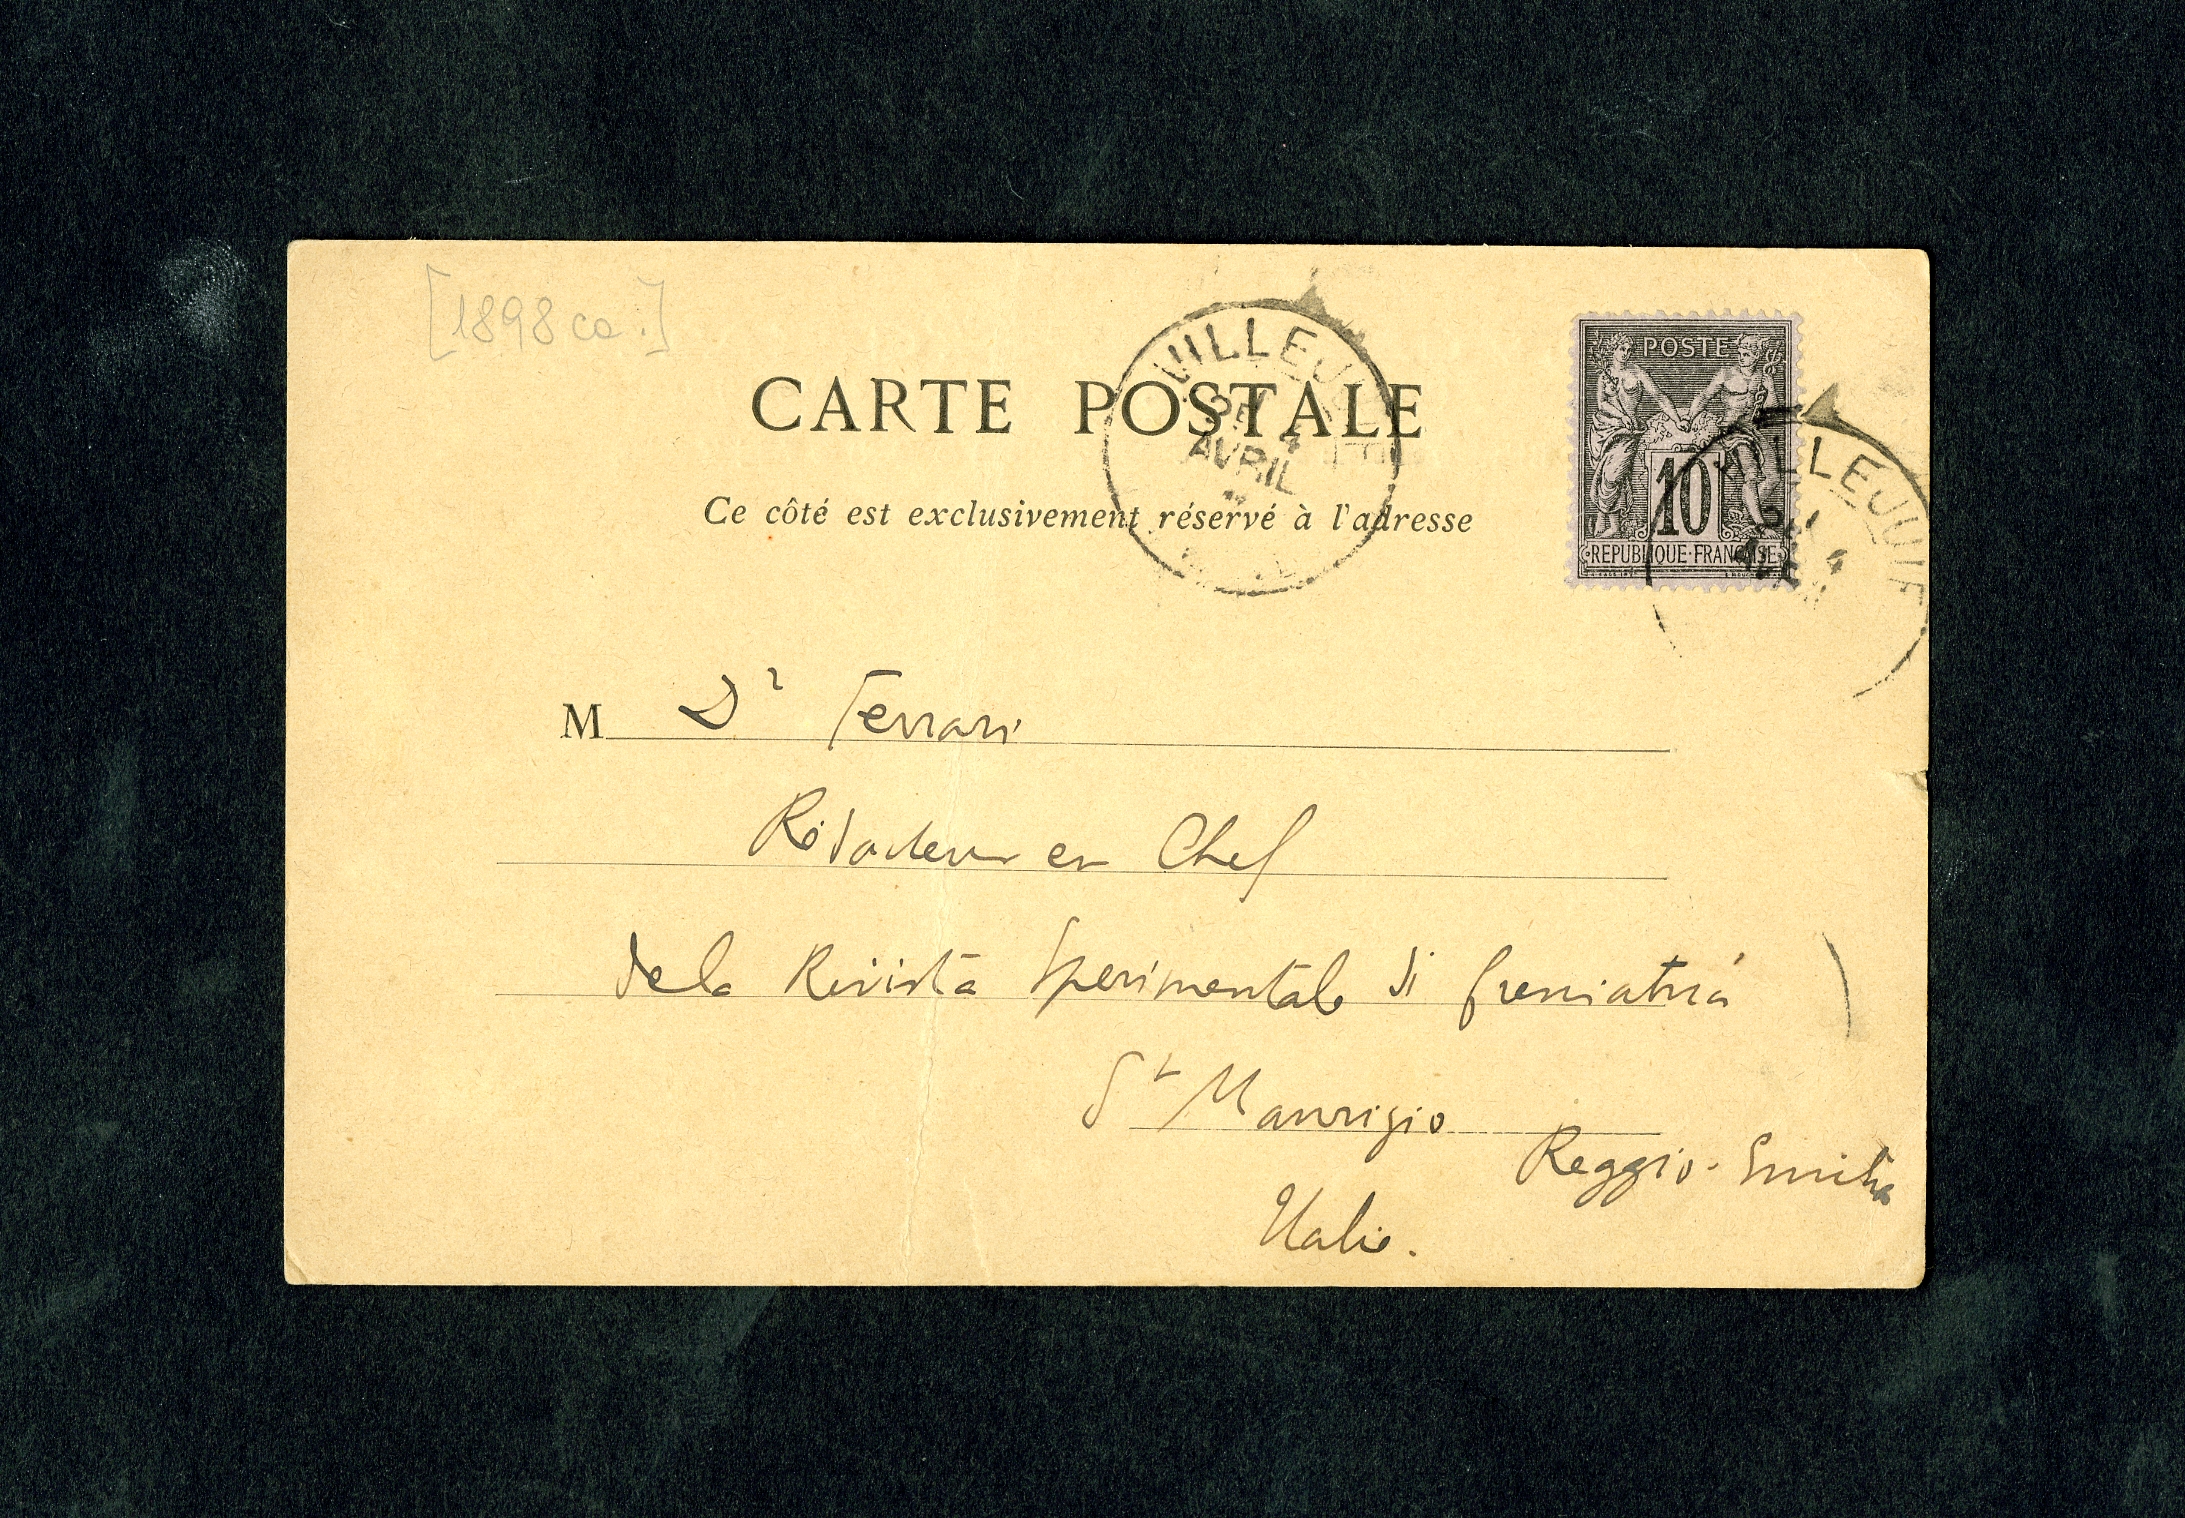 [1898 ca.]
CARTE POSTALE
Ce côté est exclusivement réservé à l'adresse
VILLEJUIF
4
AVRIL
POSTE
10
REPUBLIQUE FRANÇAISE
VILLEJUIF
4
M Dr Ferrari
Rédacteur en Chef
dela Rivista Sperimentale di freniatria
St Maurizio
Reggio-Emilia
Italie.